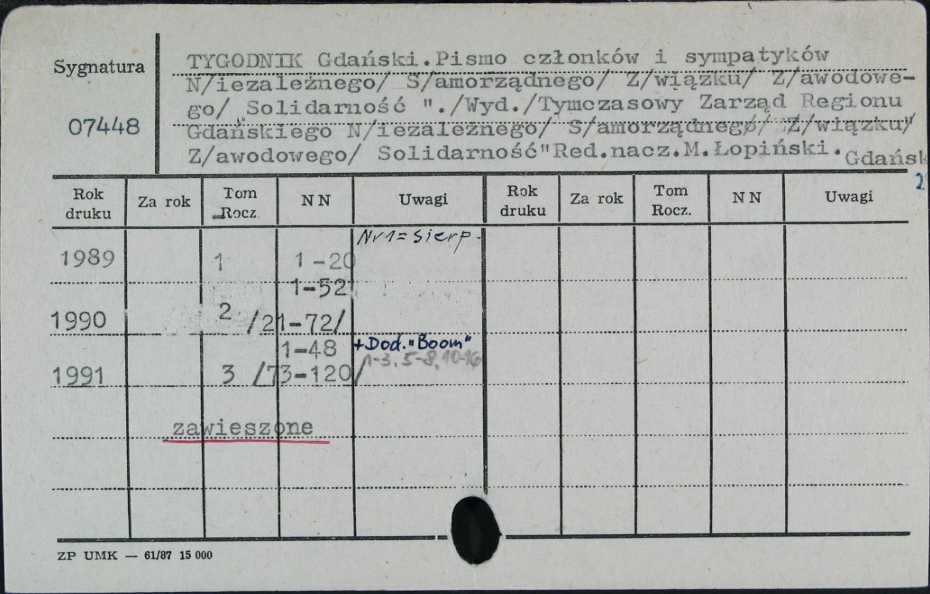 Sygnatura
07448
TYGODNIK Gdański.Pismo członków i sympatyków
N/iezależnego/ S/amorządnego/ Z/wiązku/ Z/awodowe-
go/ „Solidarność "./Wyd./Tymczasowy Zarząd Regionu
Gdańskiego N/iezależnego/ S/amorządnego/ Z/wiązku/
Z/awodowego/ Solidarność"Red.nacz.M.Łopiński. Gdańsk
2
Rok druku Za rok Tom Rocz. NN Uwagi Rok druku Za rok Tom Rocz. NN Uwagi
Nr 1 = sierp.
1989 1 1-20
1-52
1990 2 /21-72/
1-48 +Dod. "Boom"
1991 3 /73-120/ 1-3, 5-8, 10-16
zawieszone
ZP UMK — 61/87 15 000